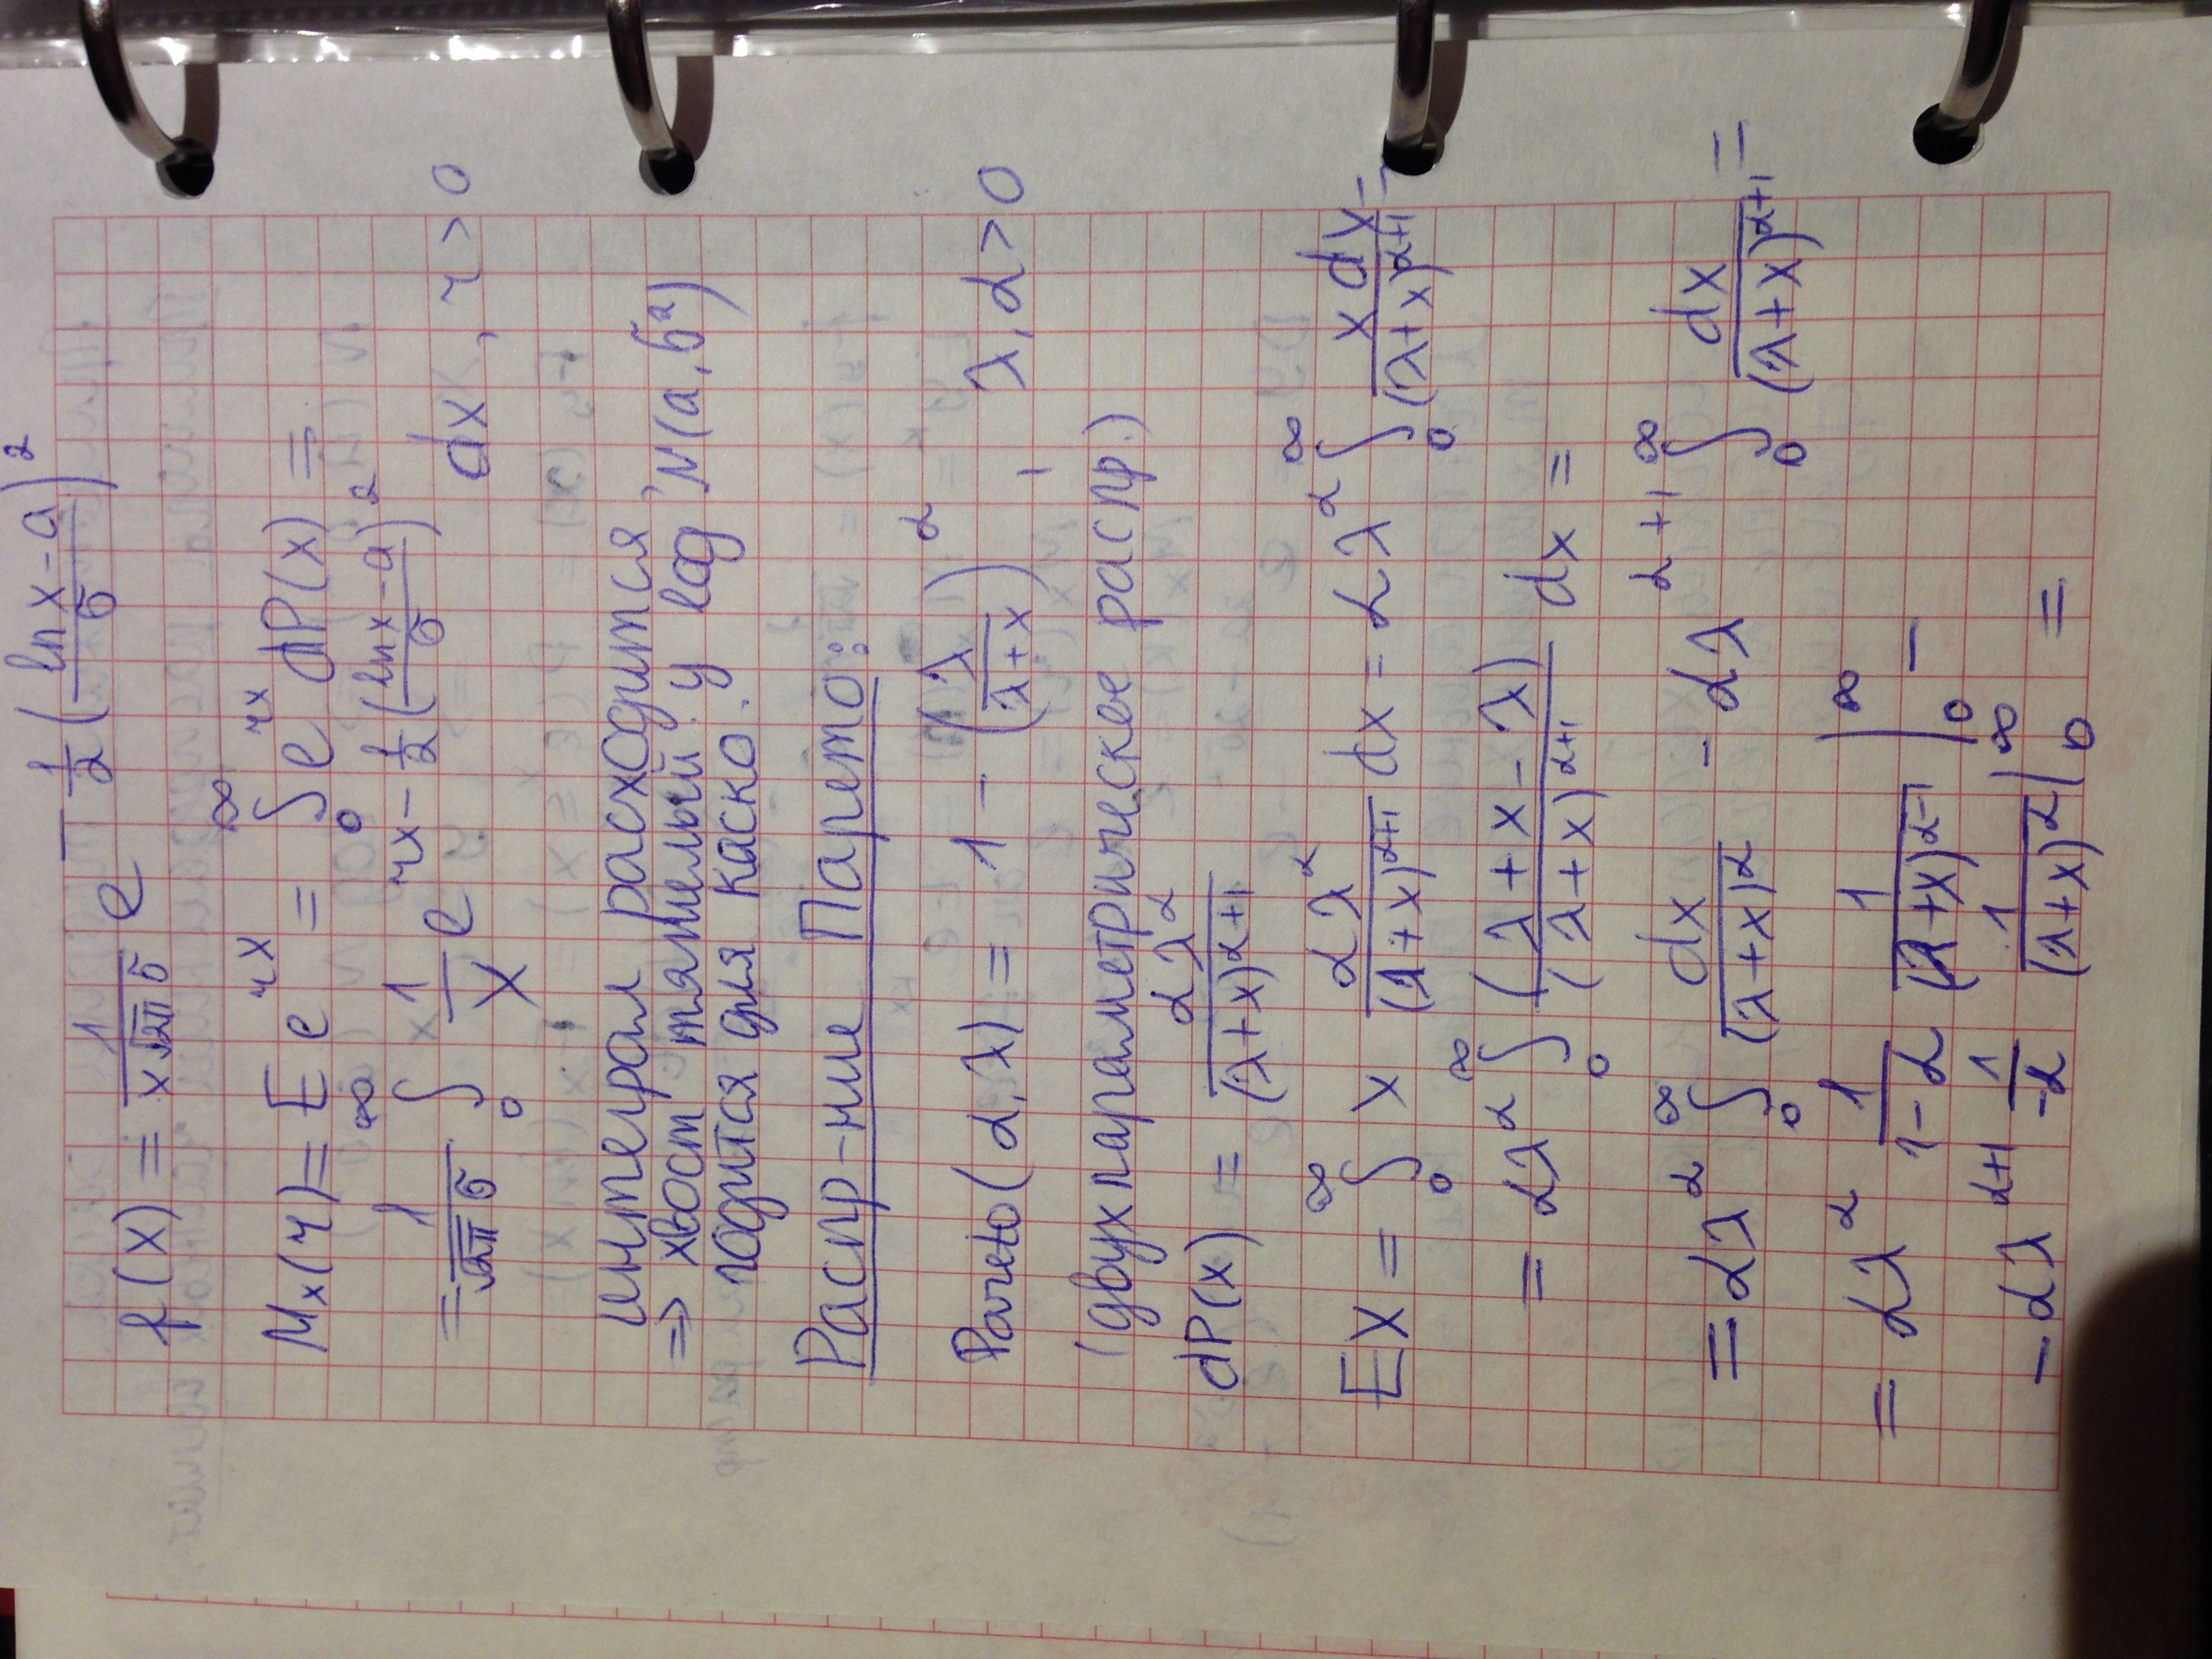 f(x) = 1/(x√2π σ) e^(-1/2 ((ln x - a)/σ)^2)
M_x(r) = E e^(rx) = ∫_0^∞ e^(rx) dP(x) =
= 1/(√2π σ) ∫_0^∞ 1/x e^(rx - 1/2 ((ln x - a)/σ)^2) dx, r > 0
интеграл расходится
=> хвост тяжелый у log N(a, σ²)
годится для каско.
Распр-ние Парето:
Pareto(α, λ) = 1 - (λ/(λ+x))^α, λ, α > 0
(двухпараметрическое распр.)
dP(x) = αλ^α/(λ+x)^(α+1)
EX = ∫_0^∞ x αλ^α/(λ+x)^(α+1) dx = αλ^α ∫_0^∞ x dx/(λ+x)^(α+1) =
= αλ^α ∫_0^∞ (λ+x-λ)/(λ+x)^(α+1) dx =
= αλ^α ∫_0^∞ dx/(λ+x)^α - αλ^(α+1) ∫_0^∞ dx/(λ+x)^(α+1) =
= αλ^α 1/(1-α) 1/(λ+x)^(α-1) |_0^∞ -
- αλ^(α+1) 1/(-α) 1/(λ+x)^α |_0^∞ =